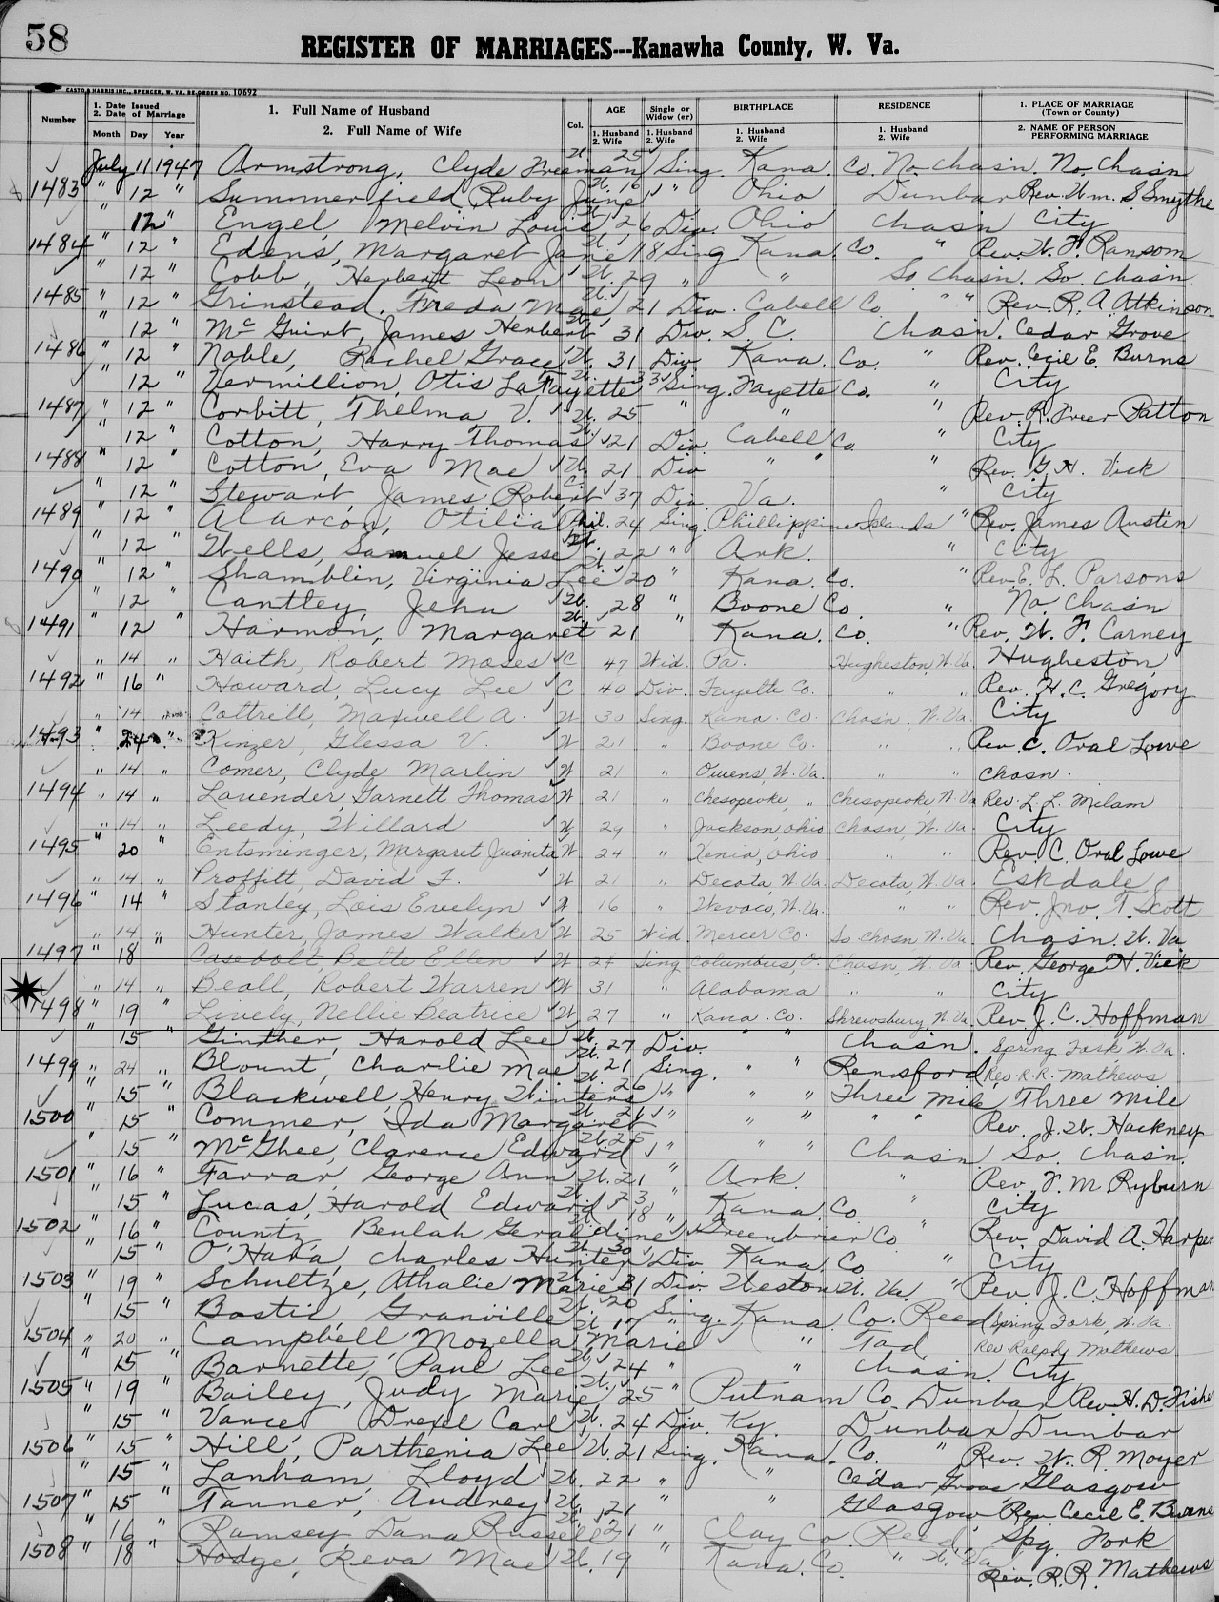 58
REGISTER OF MARRIAGES---Kanawha County, W. Va.
CASTO & HARRIS INC., SPENCER, W. VA. RE-ORDER NO. 10692
Number | 1. Date Issued 2. Date of Marriage | 1. Full Name of Husband 2. Full Name of Wife | Col. | AGE | Single or Widow (er) | BIRTHPLACE | RESIDENCE | 1. PLACE OF MARRIAGE (Town or County)
Month Day Year | 1. Husband 2. Wife | 1. Husband 2. Wife | 1. Husband 2. Wife | 1. Husband 2. Wife | 2. NAME OF PERSON PERFORMING MARRIAGE
July 11 1947 Armstrong, Clyde Freeman W. 25 Sing. Kana. Co. No. Chasn. No. Chasn
1483 " 12 " Summerfield, Ruby June W. 16 " Ohio Dunbar Rev. Wm. S. Smythe
" 12 " Engel, Melvin Louis W. 26 Div. Ohio Chasn City
1484 " 12 " Edens, Margaret Jane W. 18 Sing Kana. Co. " Rev. W. F. Ransom
" 12 " Cobb, Herbert Leon W. 29 " " So. Chasn. So. Chasn
1485 " 12 " Grinstead, Freda Mae W. 21 Div. Cabell Co. " " Rev. R. A. Atkinson
" 12 " McGuirt, James Herbert W. 31 Div. S. C. Chasn. Cedar Grove
1486 " 12 " Noble, Rachel Grace W. 31 Div Kana. Co. " Rev. Cecil E. Burns
" 12 " Vermillion, Otis LaFayette W. 33 Sing. Fayette Co. " City
1487 " 12 " Corbitt, Thelma V. W. 25 " " " Rev. R. Freer Patton
" 12 " Cotton, Harry Thomas W. 21 Div. Cabell Co. " City
1488 " 12 " Cotton, Eva Mae W. 21 Div " " " Rev. G. H. Vick
" 12 " Stewart, James Robert C. 37 Div. Va. " City
1489 " 12 " Alarcon, Otilia Phil. 24 Sing. Phillippine Islands " Rev. James Austin
" 12 " Wells, Samuel Jesse W. 22 " Ark. " City
1490 " 12 " Shamblin, Virginia Lee W. 20 " Kana. Co. " Rev. E. L. Parsons
" 12 " Cantley, Jehu W. 28 " Boone Co. " No. Chasn
1491 " 12 " Harmon, Margaret W. 21 " Kana. Co. " Rev. W. F. Carney
" 14 " Haith, Robert Moses C 47 Wid. Pa. Hugheston, W. Va. Hugheston,
1492 " 16 " Howard, Lucy Lee C 40 Div. Fayette Co. " " Rev. H. C. Gregory
" 14 Cottrill, Maxwell A. W 30 Sing Kana. Co. Chasn, W. Va. City
1493 " 24 " Kinzer, Glessa V. W 21 " Boone Co. " " Rev. C. Oral Lowe
" 14 " Comer, Clyde Marlin W 21 " Owens, W. Va. " " Chasn.
1494 " 14 " Lavender, Garnett Thomas W 21 " Chesapeake, " Chesapeake W. Va Rev. L. L. Milam
" 14 " Leedy, Willard W 29 " Jackson, Ohio Chasn, W. Va. City
1495 " 20 " Entsminger, Margaret Juanita W 24 " Xenia, Ohio " " Rev. C. Oral Lowe
" 14 " Proffitt, David F. W 21 " Decota, W. Va. Decota, W. Va. Eskdale
1496 " 14 " Stanley, Lois Evelyn W 16 " Wevaco, W. Va. " " Rev. Jno. T. Scott
" 14 " Hunter, James Walker W 25 Wid Mercer Co. So. Chasn W. Va. Chasn. W. Va
1497 " 18 " Casebolt, Bette Ellen W 24 Sing Columbus, O. Chasn, W. Va. Rev. George H. Vick
" 14 " Beall, Robert Warren W 31 " Alabama " " City
1498 " 19 " Lively, Nellie Beatrice W 27 " Kana. Co. Shrewsbury, W. Va. Rev. J. C. Hoffman
" 15 " Ginther, Harold Lee W. 27 Div. " " Chasn. Spring Fork W. Va.
1499 " 24 " Blount, Charlie Mae W. 21 Sing. " " Rensford Rev. R. R. Mathews
" 15 " Blackwell, Henry Winters W. 26 " " " Three Mile Three Mile
1500 " 15 " Commer, Ida Margaret W. 21 " " " " " Rev. J. W. Hackney
" 15 " McGhee, Clarence Edward W. 25 " " " Chasn So. Chasn.
1501 " 16 " Farrar, George Ann W. 21 " Ark. " Rev. F. M. Ryburn
" 15 " Lucas, Harold Edward W. 23 " Kana. Co. " City
1502 " 16 " Countz, Beulah Geraldine W. 18 " Greenbrier Co " Rev. David A. Harper
" 15 " O'Hara, Charles Hunter W. 30 Div. Kana. Co " City
1503 " 19 " Schultze, Athalie Marie W. 31 Div. Weston W. Va. " Rev. J. C. Hoffman
" 15 " Bostic, Granville W. 20 Sing. Kana. Co. Reed Spring Fork, W. Va.
1504 " 20 " Campbell, Mozella Marie W. 17 " " Tad Rev Ralph Mathews
" 15 " Barnette, Paul Lee W. 24 " " Chasn. City
1505 " 19 " Bailey, Judy Marie W. 25 " Putnam Co. Dunbar Rev. H. D. Fisher
" 15 " Vance, Drexel Carl W. 24 Div. Ky. Dunbar Dunbar
1506 " 15 " Hill, Parthenia Lee W. 21 Sing. Kana. Co. " Rev. W. R. Moyer
" 15 " Lanham, Lloyd W. 22 " " Cedar Grove Glasgow
1507 " 15 " Tanner, Audrey W. 21 " " Glasgow Rev. Cecil E. Burns
" 16 " Ramsey, Dana Russell W. 21 " Clay Co. Reed, Spg. Fork
1508 " 18 " Hodge, Reva Mae W. 19 " Kana. Co. " W. Va Rev. R. R. Mathews